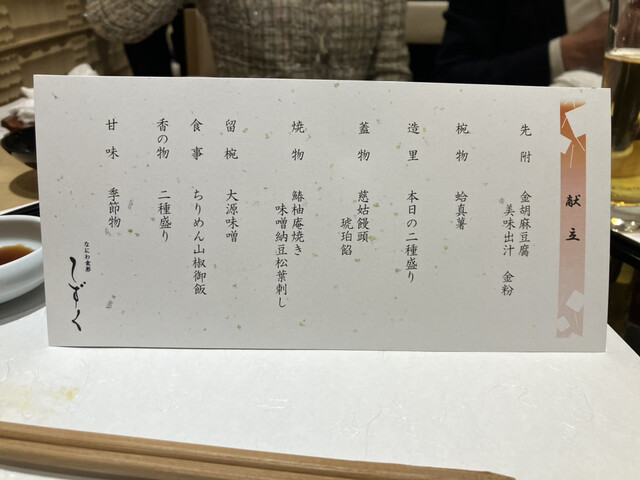 献立
先附 金胡麻豆腐
美味出汁 金粉
椀物 蛤真薯
造里 本日の二種盛り
蓋物 慈姑饅頭
琥珀餡
焼物 鰆柚庵焼き
味噌納豆松葉刺し
留椀 大源味噌
食事 ちりめん山椒御飯
香の物 二種盛り
甘味 季節物
なにわ食彩
しずく